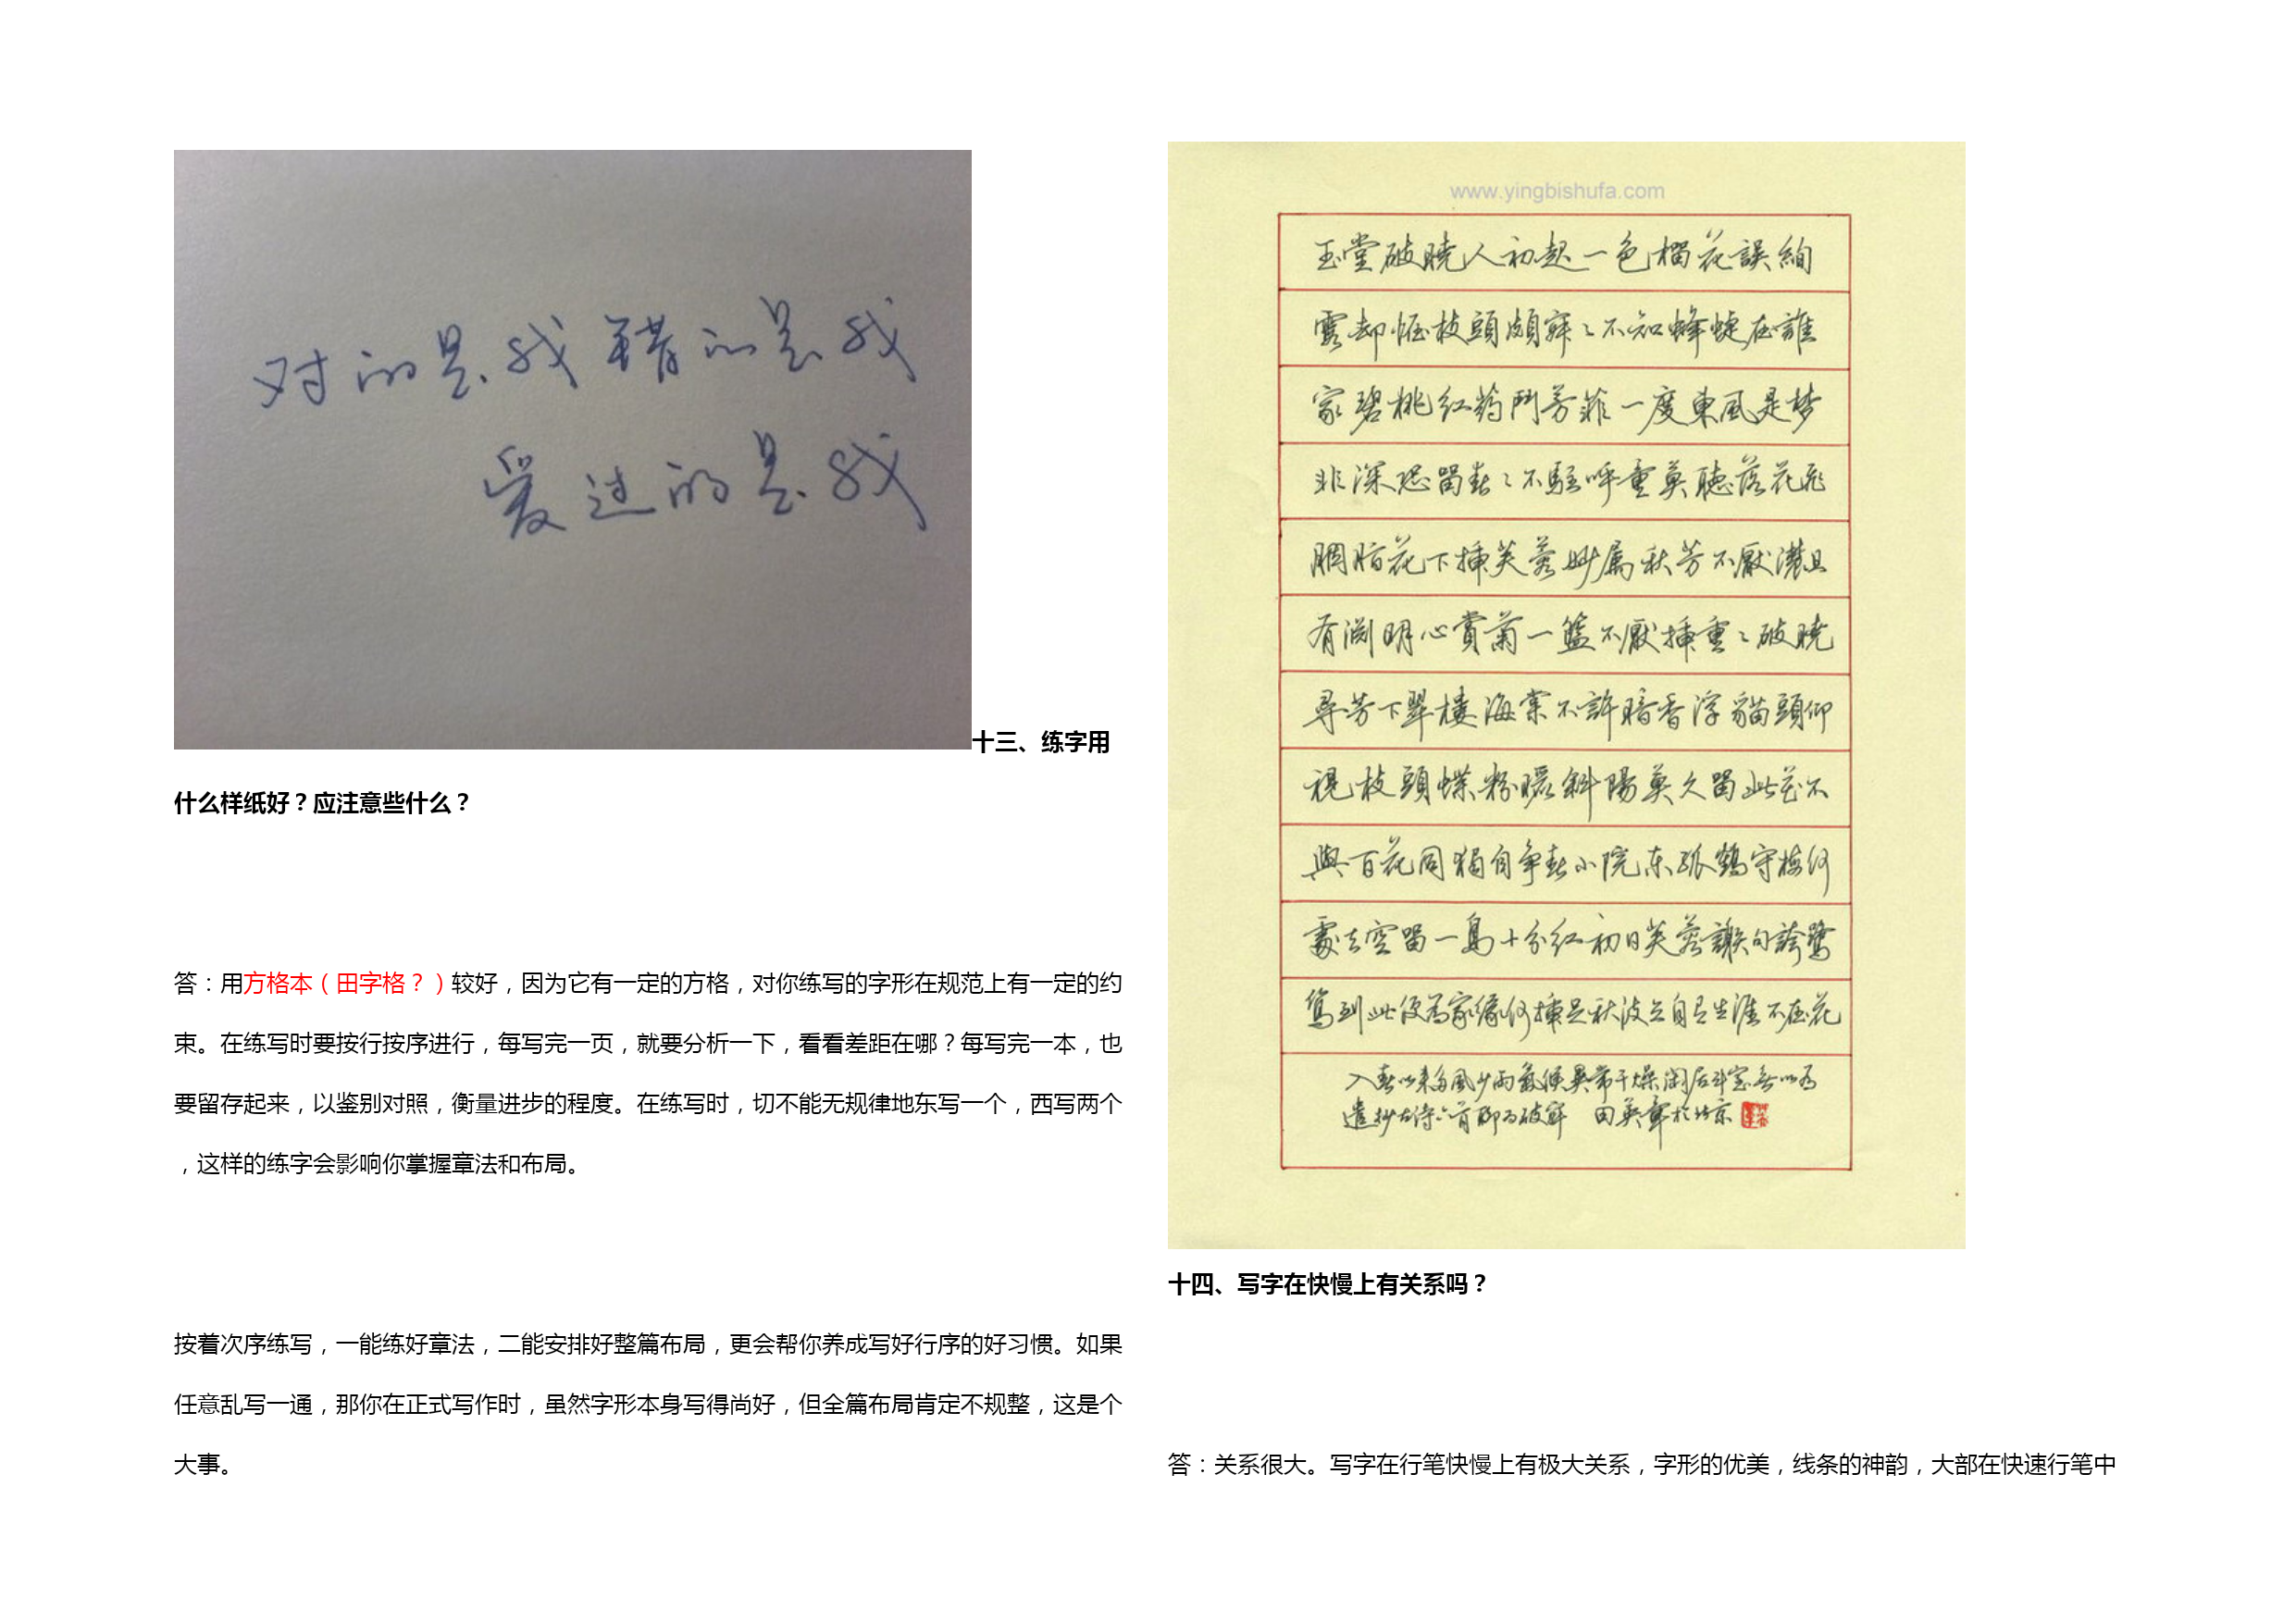 对的是我错的是我
爱过的是我
十三、练字用
什么样纸好？应注意些什么？
答：用方格本（田字格？）较好，因为它有一定的方格，对你练写的字形在规范上有一定的约
束。在练写时要按行按序进行，每写完一页，就要分析一下，看看差距在哪？每写完一本，也
要留存起来，以鉴别对照，衡量进步的程度。在练写时，切不能无规律地东写一个，西写两个
，这样的练字会影响你掌握章法和布局。
按着次序练写，一能练好章法，二能安排好整篇布局，更会帮你养成写好行序的好习惯。如果
任意乱写一通，那你在正式写作时，虽然字形本身写得尚好，但全篇布局肯定不规整，这是个
大事。
www.yingbishufa.com
玉堂破曉人初起一色榴花誤絢
露却恠枝頭頗寂〻不知蜂蜨在誰
家碧桃红药鬥芳菲一度東風是梦
非深恐留春〻不駐呼童莫聴落花飛
胭脂花下插芙蓉妙属秋芳不厭濃且
有渊明心賞菊一籃不厭插重〻破曉
尋芳下翠樓海棠不許暗香浮貓頭仰
視枝頭蝶粉暖斜陽莫久留此花不
與百花同獨自争春小院东孤鶴守梅何
處去空留一島十分红初日芙蓉謝句誇鷺
鴛到此便為家缘何插足秋波去自是生涯不在花
入春以来多風少雨氣候異常干燥闲居斗室無以為
遣抄古诗六首聊为破寂 田英章於北京
十四、写字在快慢上有关系吗？
答：关系很大。写字在行笔快慢上有极大关系，字形的优美，线条的神韵，大部在快速行笔中